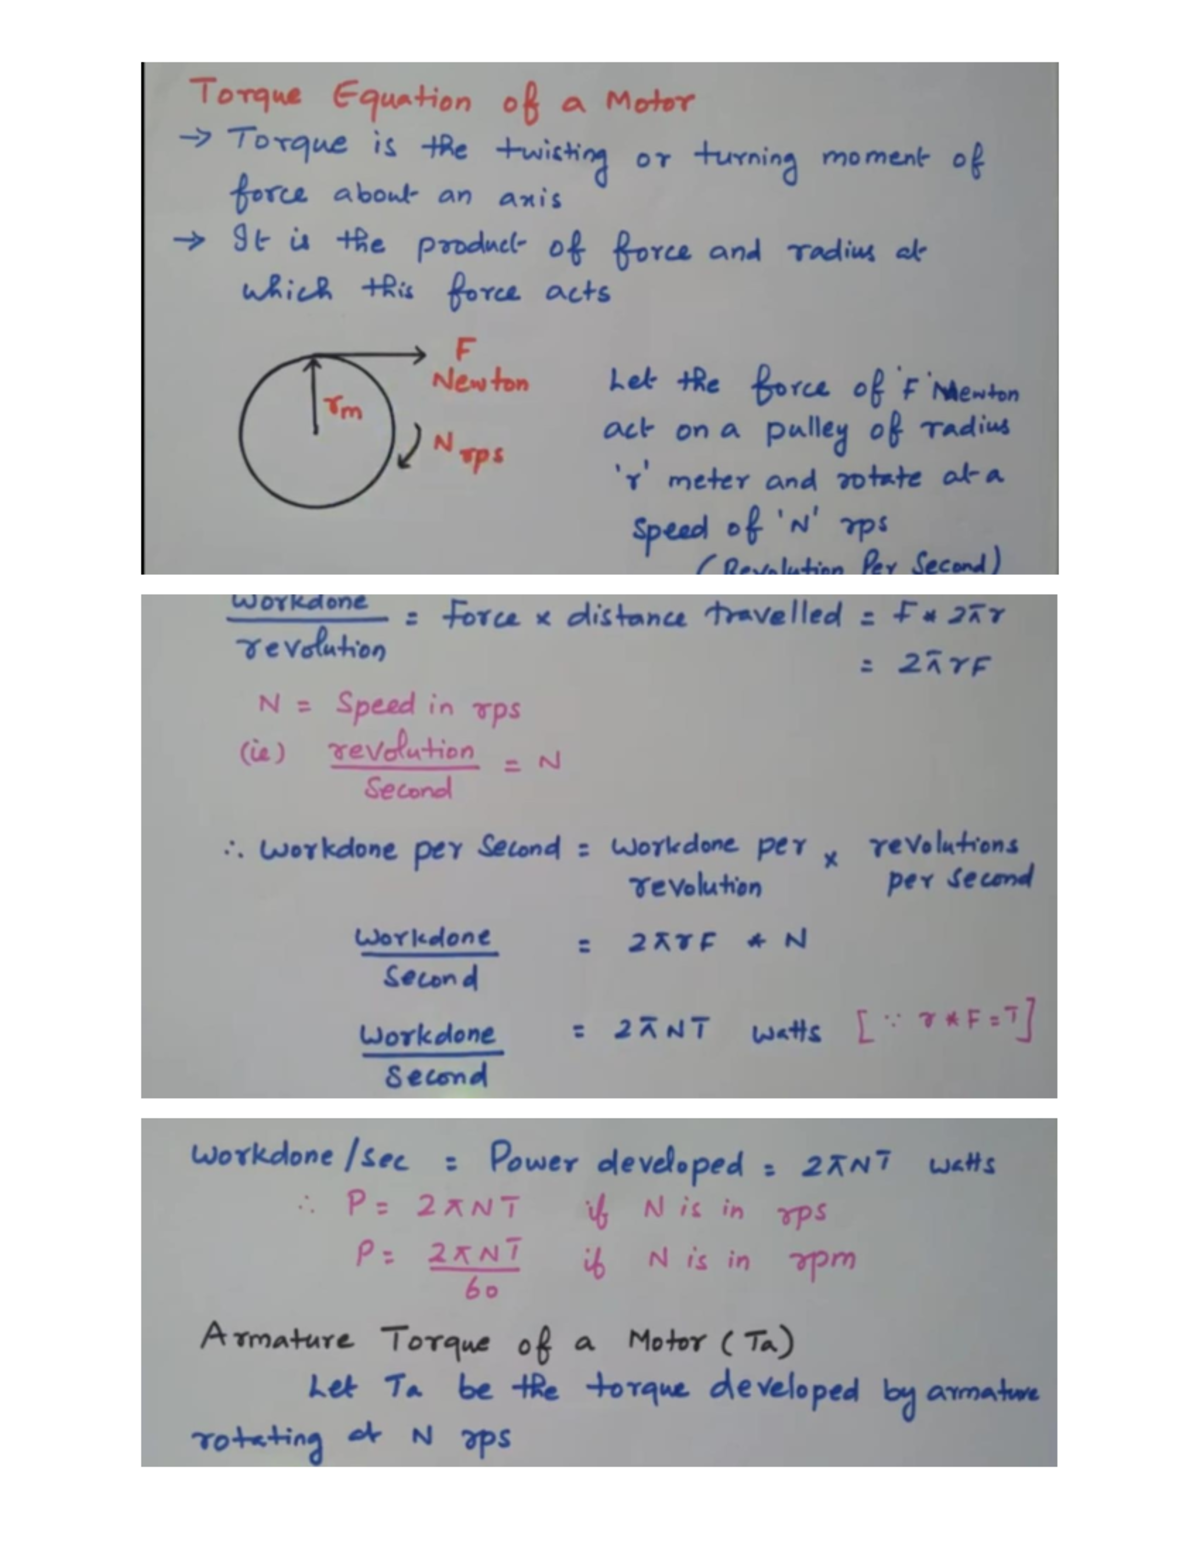 Torque Equation of a Motor
→ Torque is the twisting or turning moment of
force about an axis
→ It is the product of force and radius at
which this force acts
F
Newton
rm
N rps
Let the force of 'F' Newton
act on a pulley of radius
'r' meter and rotate at a
speed of 'N' rps
(Revolution Per Second)
Workdone / revolution = Force × distance travelled = F * 2πr
= 2πrF
N = Speed in rps
(ie) revolution / Second = N
∴ Workdone per Second = Workdone per revolution × revolutions per second
Workdone / Second = 2πrF * N
Workdone / Second = 2πNT watts [∵ r*F=T]
Workdone/sec = Power developed = 2πNT watts
∴ P = 2πNT if N is in rps
P = 2πNT / 60 if N is in rpm
Armature Torque of a Motor (Ta)
Let Ta be the torque developed by armature
rotating at N rps